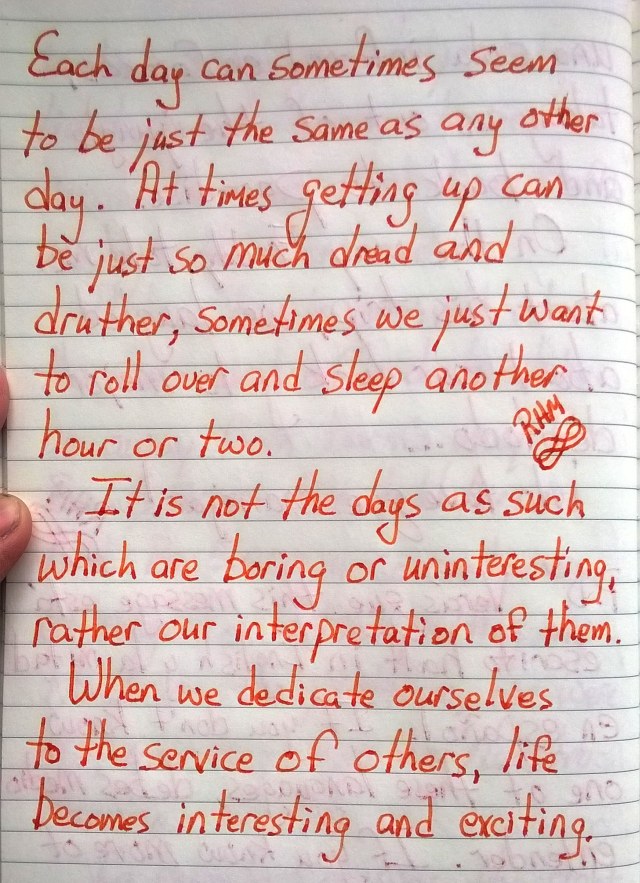 Each day can sometimes seem
to be just the same as any other
day. At times getting up can
be just so much dread and
druther, sometimes we just want
to roll over and sleep another
hour or two.
RHM
It is not the days as such
which are boring or uninteresting,
rather our interpretation of them.
When we dedicate ourselves
to the service of others, life
becomes interesting and exciting.